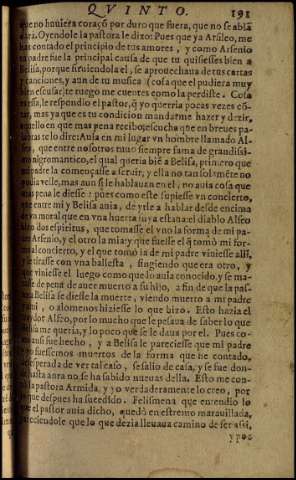 QVINTO. 191
que no huuiera coraçõ por duro que fuera, que no se ablã
dara. Oyendole la pastora le dixo: Pues que ya Arsileo, me
has contado el principio de tus amores, y como Arsenio
tu padre fue la principal causa de que tu quisiesses bien a
Belisa, porque siruiendola el, se aprouechaua de tus cartas
y canciones, y aun de tu musica (cosa que el pudiera muy
bien escusar, te ruego me cuentes como la perdiste. Cosa
es essa, le respondio el pastor, q̃ yo querria pocas vezes cõ
tar, mas ya que es tu condicion mandarme hazer y dezir,
aquello en que mas pena recibo, escucha que en breues pa
labras te lo dire: Auia en mi lugar vn hombre llamado Al-
feo, que entre nosotros tuuo siempre fama de grandissi-
mo nigromantico, el qual queria biẽ a Belisa, primero que
mi padre la començasse a seruir, y ella no tan solamẽte no
podia velle, mas aun si le hablauan en el, no auia cosa que
mas pena le diesse: pues como este supiesse vn concierto,
que entre mi y Belisa auia, de yrle a hablar desde encima
de vn moral que en vna huerta suya estaua: el diablo Alfeo
hizo dos espiritus, que tomasse el vno la forma de mi pa-
dre Arsenio, y el otro la mia: y que fuesse el q̃ tomó mi for-
ma al concierto, y el que tomó la de mi padre viniesse alli,
y le tirasse con vna ballesta, fingiendo que era otro, y
que viniesse el luego como que lo auia conocido, y se ma-
tasse de pena de auer muerto a su hijo, a fin de que la pas-
tora Belisa se diesse la muerte, viendo muerto a mi padre
y a mi, o alomenos hiziesse lo que hizo. Esto hazia el
traydor Alfeo, por lo mucho que le pesaua de saber lo que
Belisa me queria, y lo poco que se le daua por el. Pues co-
mo assi fue hecho, y a Belisa le pareciesse que mi padre
y yo fuessemos muertos de la forma que he contado,
desesperada de ver tal caso, se salio de casa, y se fue don-
de hasta aora no se ha sabido nueuas della. Esto me con-
tó la pastora Armida, y yo verdaderamente lo creo, por
lo que despues ha sucedido. Felismena que entendio lo
que el pastor auia dicho, quedó en estremo marauillada,
pareciendole que lo que dezia lleuaua camino de ser assi,
y por